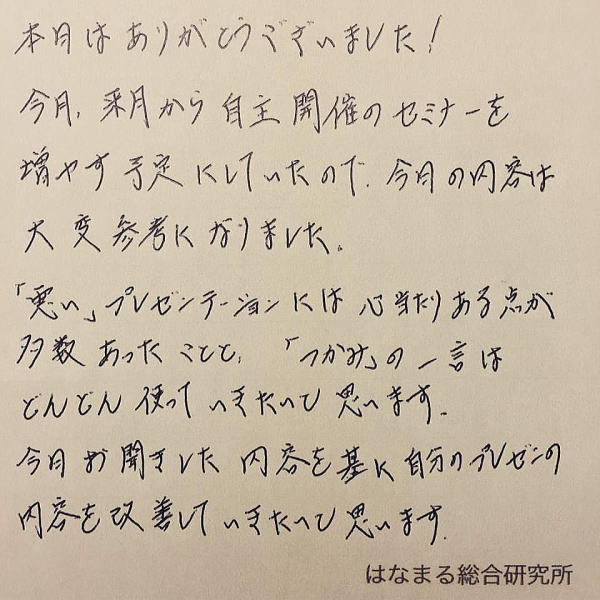 本日はありがとうございました!
今月、来月から自主開催のセミナーを
増やす予定にしていたので、今日の内容は
大変参考になりました。
「悪い」プレゼンテーションには心当たりある点が
多数あったことと、「つかみ」の一言は
どんどん使っていきたいと思います。
今日お聞きした内容を基に自分のプレゼンの
内容を改善していきたいと思います。
はなまる総合研究所